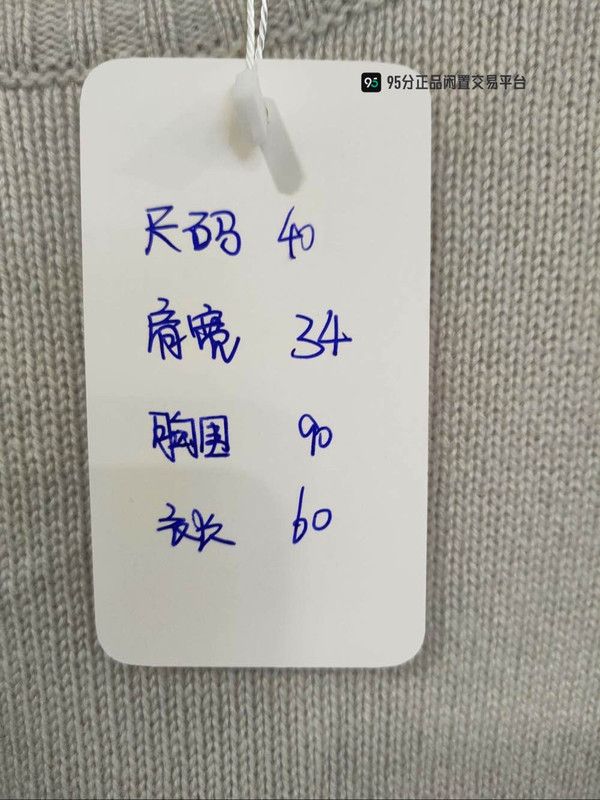 95 95分正品闲置交易平台
尺码 40
肩宽 34
胸围 90
衣长 60